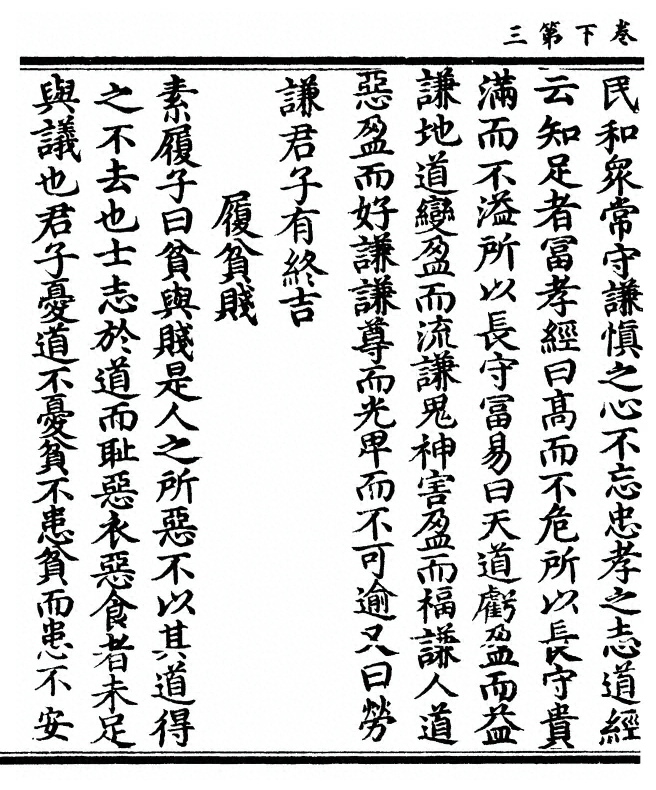 卷下第三
民和衆常守謙慎之心不忘忠孝之志道經
云知足者冨孝經曰髙而不危所以長守貴
滿而不溢所以長守冨易曰天道虧盈而益
謙地道變盈而流謙鬼神害盈而福謙人道
惡盈而好謙謙尊而光卑而不可逾又曰勞
謙君子有終吉
履貧賤
素履子曰貧與賤是人之所惡不以其道得
之不去也士志於道而恥惡衣惡食者未足
與議也君子憂道不憂貧不患貧而患不安